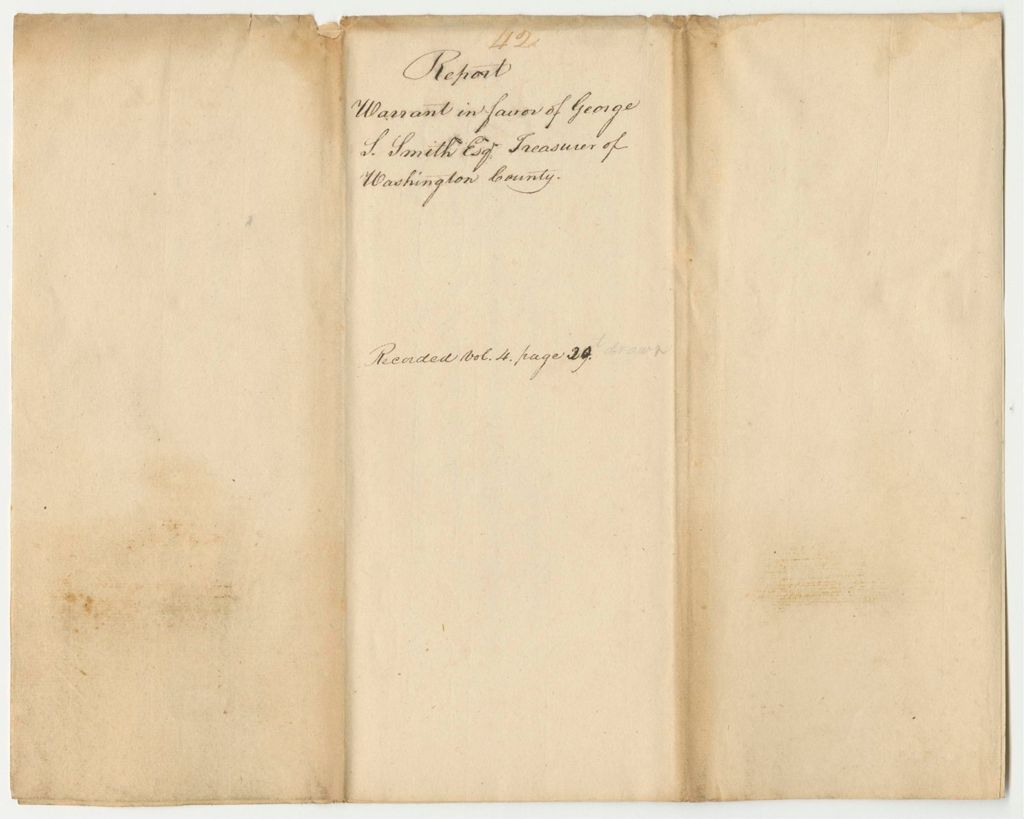 42
Report
Warrant in favor of George
S. Smith Esqr. Treasurer of
Washington County.
Recorded Vol. 4. page 29. drawn